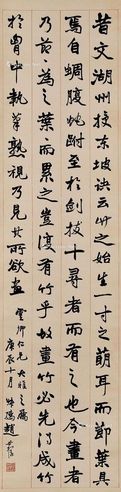 昔文湖州授東坡訣云竹之始生一寸之萌耳而節葉具
焉自蜩腹蛇蚹至於劍拔十尋者而有之也今畫者
乃節節為之葉葉而累之豈復有竹乎故畫竹必先得成竹
於胸中執筆熟視乃見其所欲畫
雲卿仁兄大雅之屬
庚辰十月 趙